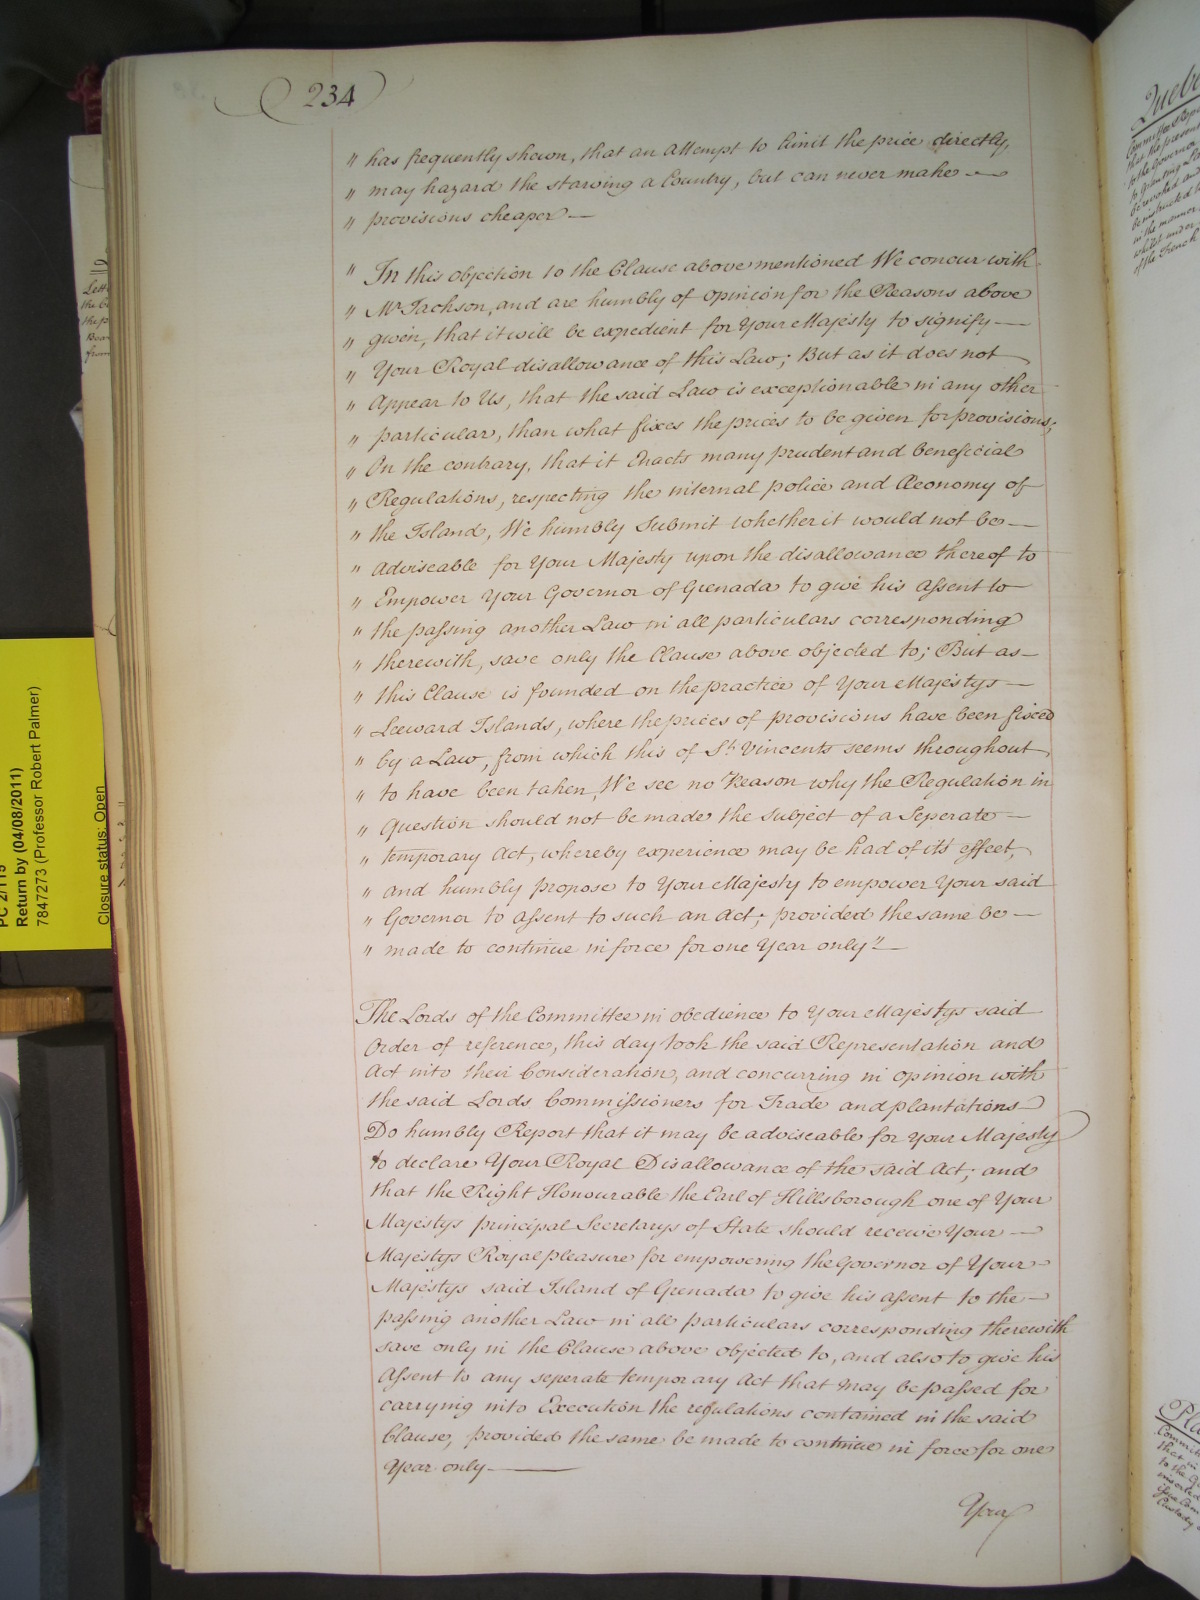 234
" has frequently shown, that an Attempt to limit the price directly,
" may hazard the starving a Country, but can never make —
" provisions cheaper —
" In this objection to the Clause above mentioned We concur with
" Mr Jackson, and are humbly of opinion for the Reasons above
" given, that it will be expedient for Your Majesty to signify —
" Your Royal disallowance of this Law; But as it does not
" Appear to Us, that the said Law is exceptionable in any other
" particular, than what fixes the prices to be given for provisions;
" On the contrary, that it Enacts many prudent and beneficial
" Regulations, respecting the internal police and Œconomy of
" the Island, We humbly Submit whether it would not be —
" adviseable for Your Majesty upon the disallowance thereof to
" Empower Your Governor of Grenada to give his Assent to
" the passing another Law in all particulars corresponding
" therewith, save only the Clause above objected to; But as —
" this Clause is founded on the practice of Your Majestys —
" Leeward Islands, where the prices of provisions have been fixed
" by a Law, from which this of St. Vincents seems throughout,
" to have been taken, We see no Reason why the Regulation in
" Question should not be made the subject of a Seperate —
" temporary Act, whereby experience may be had of its effect,
" and humbly propose to Your Majesty to empower Your said
" Governor to assent to such an Act; provided the same be —
" made to continue in force for one Year only" —
The Lords of the Committee in obedience to Your Majestys said
Order of reference, this day took the said Representation and
Act into their Consideration, and concurring in opinion with
the said Lords Commissioners for Trade and plantations
Do humbly Report that it may be adviseable for your Majesty
to declare Your Royal Disallowance of the said Act; and
that the Right Honourable the Earl of Hillsborough one of Your
Majestys principal Secretarys of State should receive Your —
Majestys Royal pleasure for empowering the Governor of Your —
Majestys said Island of Grenada to give his assent to the —
passing another Law in all particulars corresponding therewith
save only in the Clause above objected to, and also to give his
Assent to any seperate temporary Act that may be passed for
carrying into Execution the regulations contained in the said
Clause, provided the same be made to continue in force for one
Year only —
Your
Return by (04/08/2011)
7847273 (Professor Robert Palmer)
Closure status: Open